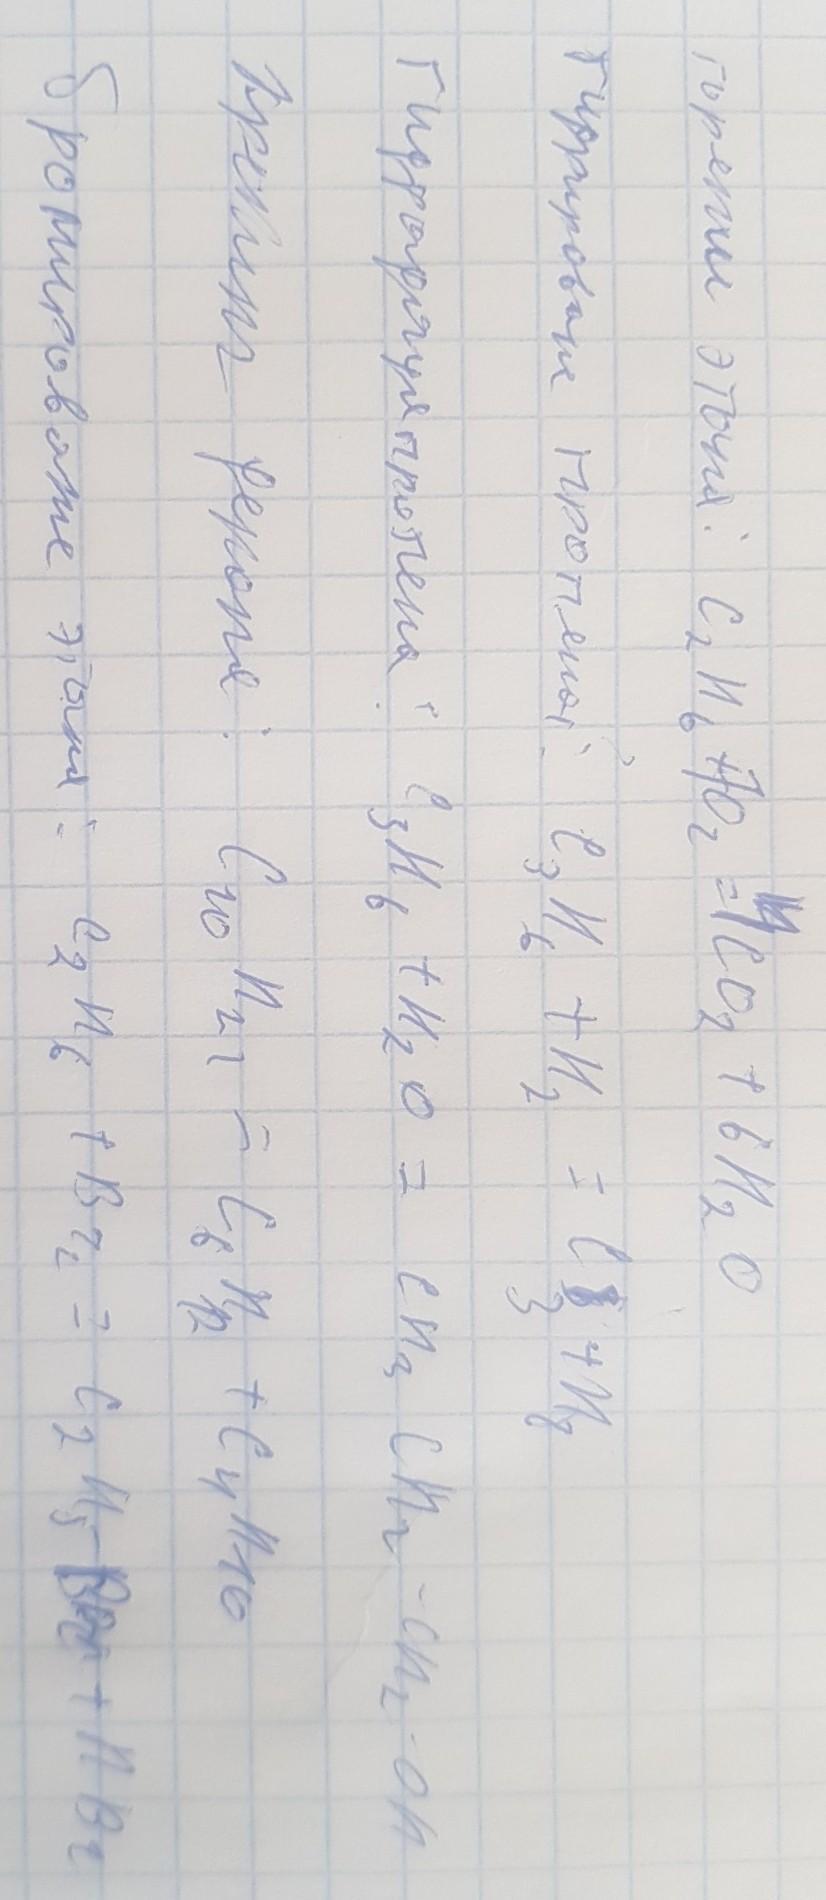 горение этана: C2H6 + 7O2 = 4CO2 + 6H2O
Гидрирование пропена: C3H6 + H2 = C3 + H8
Гидратация пропена: C3H6 + H2O = CH3 CH2 - CH2 - OH
Крекинг декана: C10H22 = C6H12 + C4H10
бромирование этана: C2H6 + Br2 = C2H5 Br + HBr